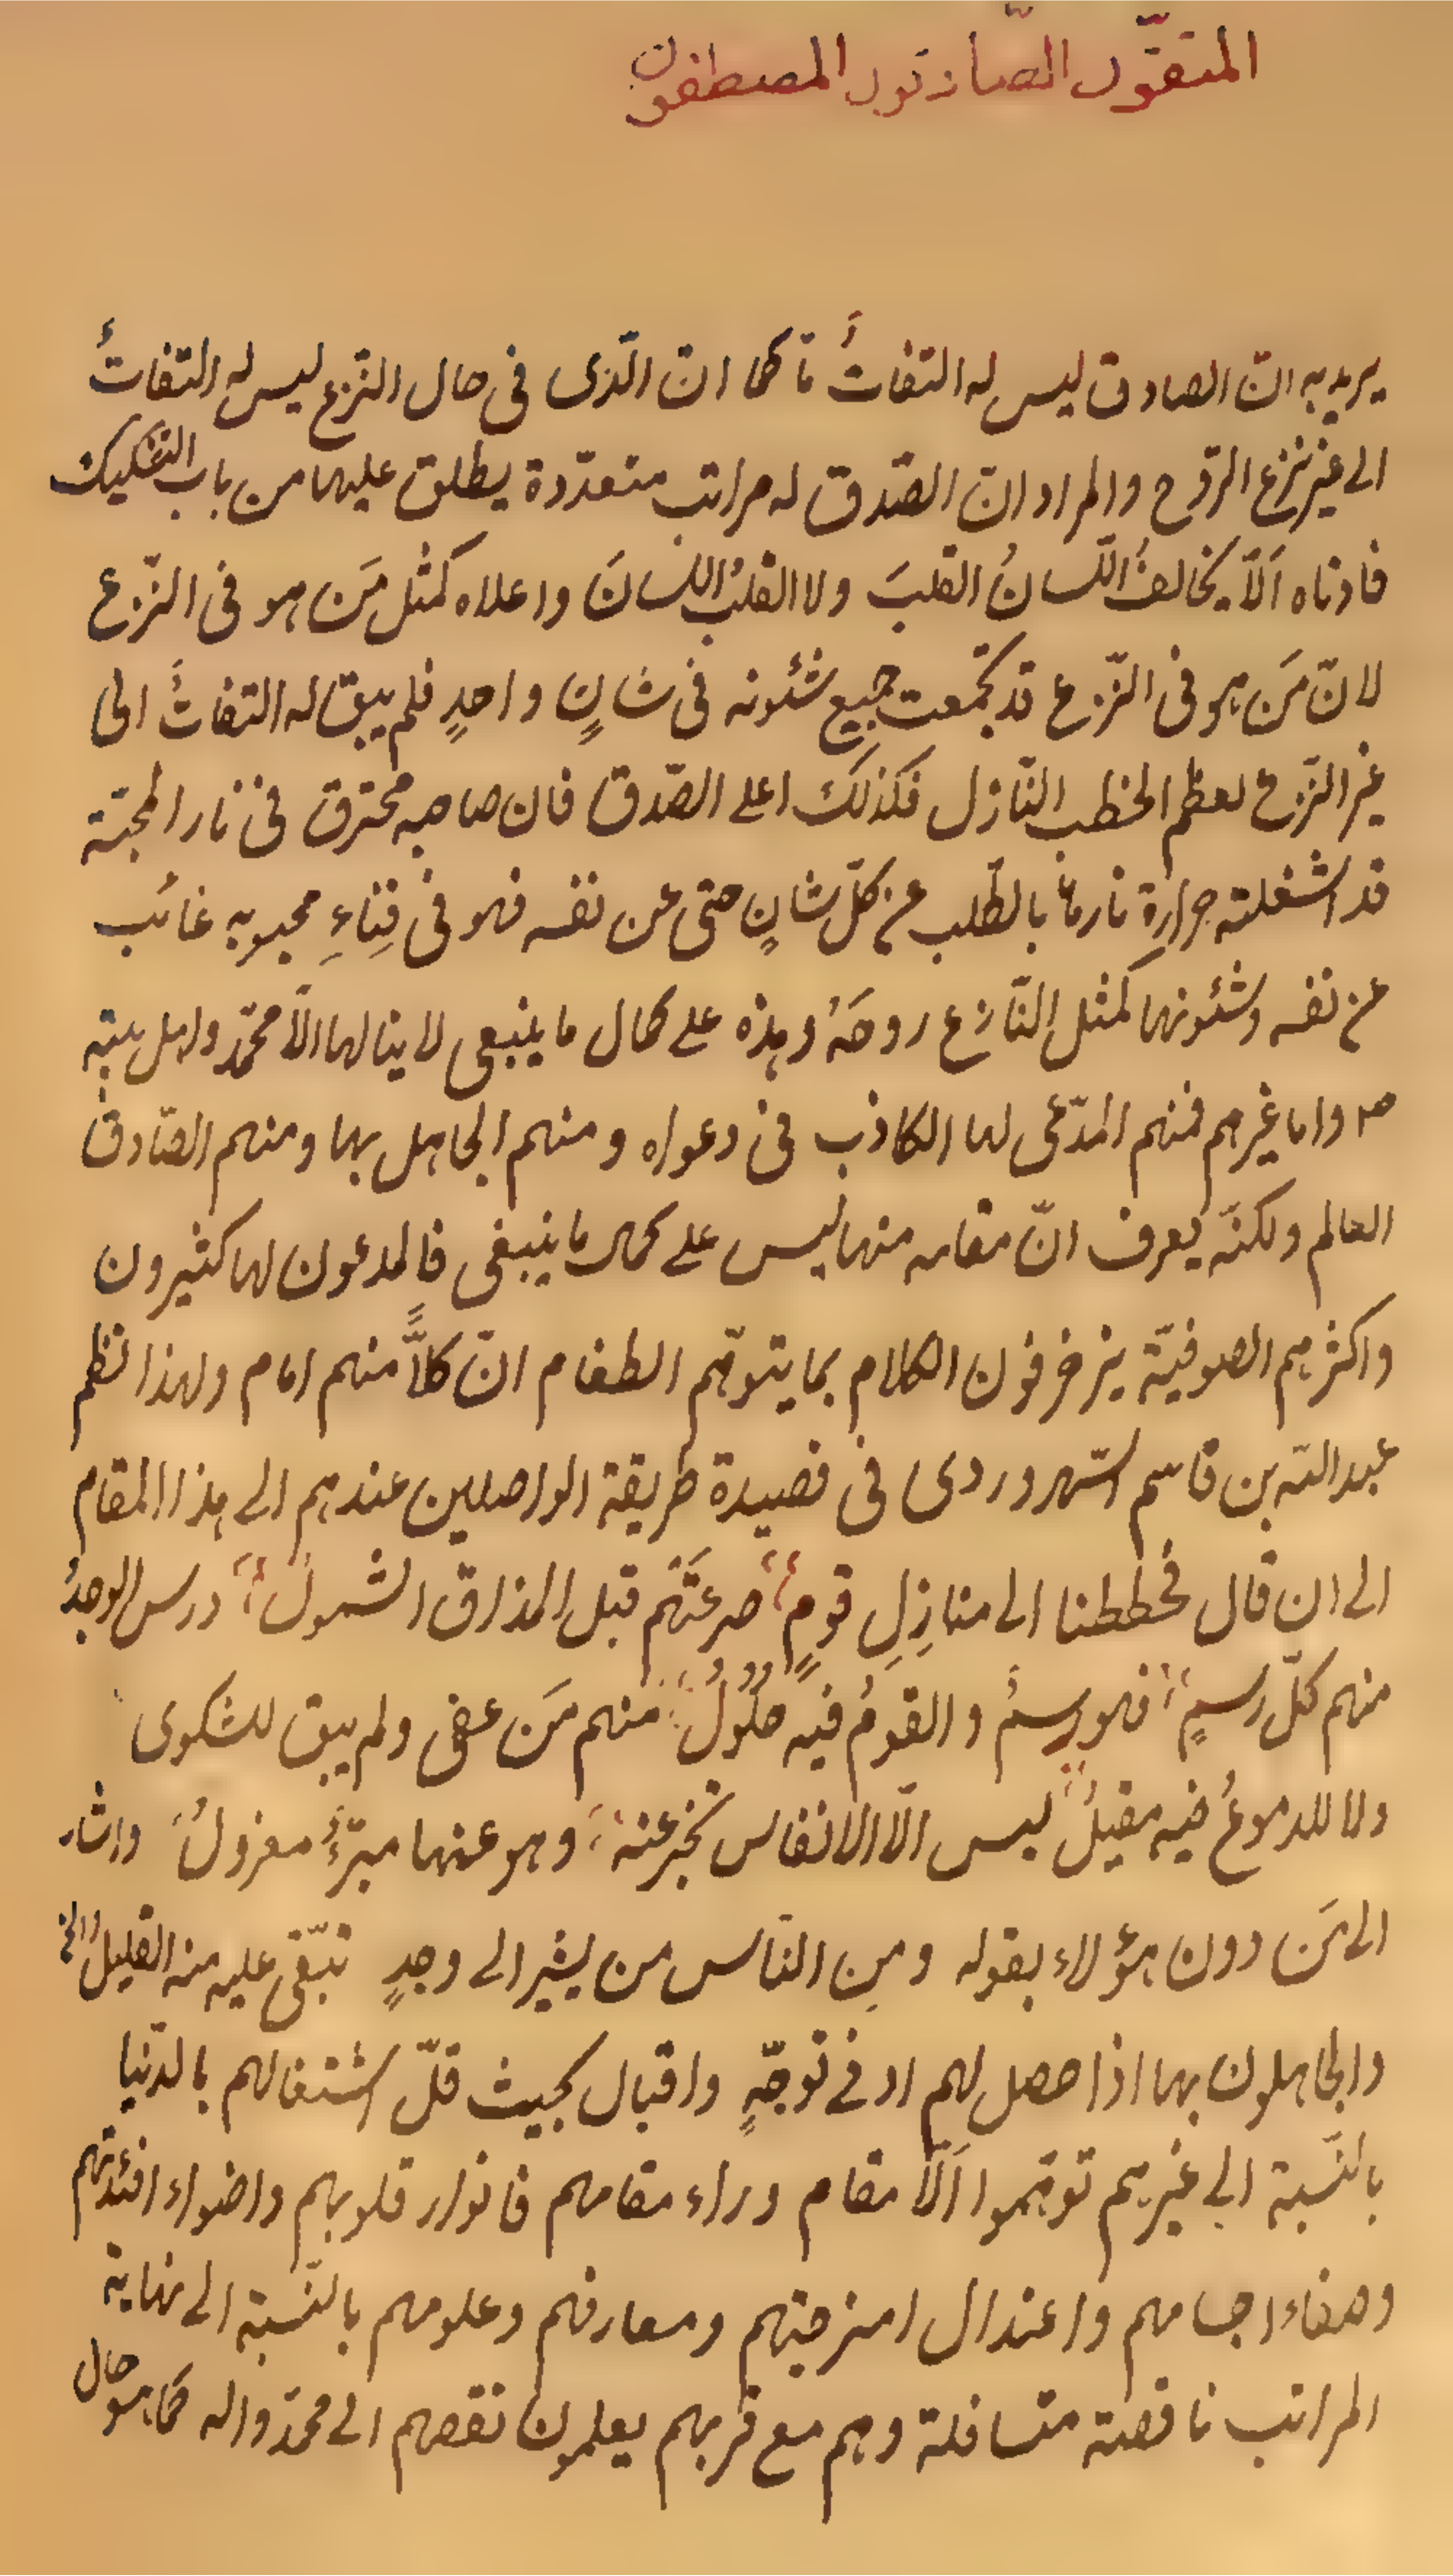 المتقّون الصّادقون المصطفون
يريد به انّ الصادق ليس له التفاتٌ ما كما انّ الّذى فى حال النّزع ليس له التفاتٌ
الى غير نزع الرّوح والمراد انّ الصّدق له مراتب متعدّدة يطلق عليها من باب التشكيك
فادناه اَلّا يخالفُ اللّسانُ القلبَ ولا القلبُ اللسانَ واعلاه كمثل مَن هو فى النّزع
لانّ مَن هو فى النّزع قد تجمّعت جميع شئونه فى شانٍ واحدٍ فلم يبق له التفاتٌ الى
غير النّزع لعظم الخطب النّازل فكذلك اعلى الصّدق فان صاحبه محترق فى نار المحبّة
قد اشغلته حرارة نارها بالطّلب عن كلّ شانٍ حتى عن نفسه فهو فى فِناءِ محبوبه غائب
عن نفسه وشئونها كمثل النّازع روحَهُ وهذه على كمال ما ينبغى لا ينالها الّا محمّد واهل بيته
ص واما غيرهم فمنهم المدّعى لها الكاذب فى دعواه ومنهم الجاهل بها ومنهم الصّادق
العالم ولكنّه يعرف انّ مقامه منها ليس على كمال ما ينبغى فالمدعون لها كثيرون
واكثرهم الصوفيّة يزخرفون الكلام بما يتوهّم الطغام انّ كلاًّ منهم امام ولهذا نظم
عبدالله بن قاسم السّهروردى فى قصيدة طريقة الواصلين عندهم الى هذا المقام
الى ان قال فحططنا الى منازِلِ قومٍ صرعَتْهُم قبل المذاق الشمولُ درس الوجدُ
منهم كلّ رسمٍ فهو رسمٌ والقومُ فيه حلُولُ منهم مَن عفى ولم يبق للشكوى
ولا للدموعُ فيه مقيلُ ليس الّا الانفاس تخبر عنه وهو عنها مبرّءٌ معزولُ واشار
الى مَن دون هؤلاء بقوله ومِن النّاس من يشير الى وجدٍ تبّقى عليه منه القليلُ الخ
والجاهلون بها اذا حصل لهم ادنى توجّهٍ واقبال بحيث قلّ اشتغالهم بالدّنيا
بالنّسبة الى غيرهم توهّموا اَلّا مقام وراء مقامهم فانوار قلوبهم واضواء افئدتهم
وصفاء اجسامهم واعتدال امزجتهم ومعارفهم وعلومهم بالنّسبة الى نهاية
المراتب ناقصة متسافلة وهم مع قربهم يعلمون نقصهم الى محمّد واله كما هو حال